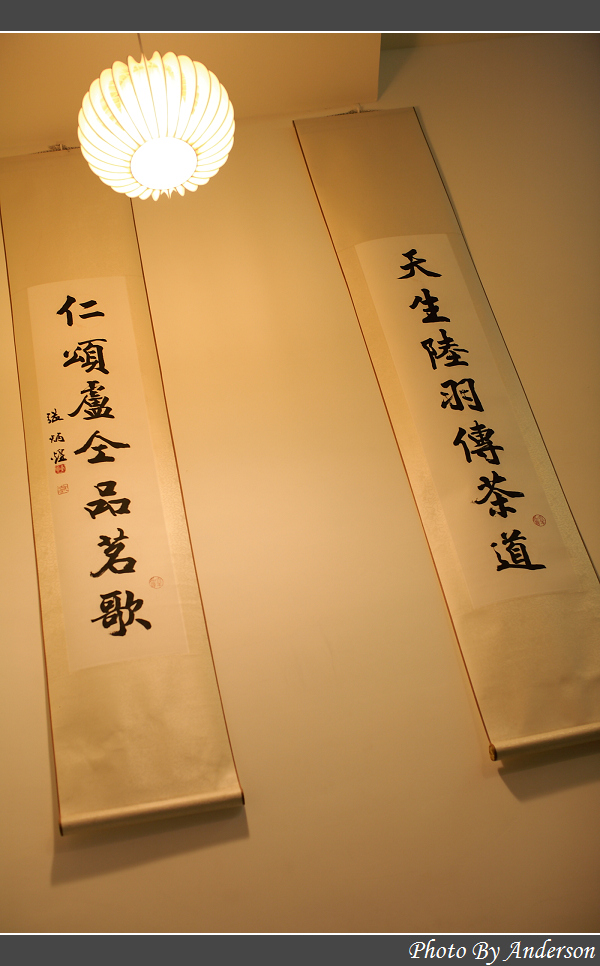 天生陸羽傳茶道
仁頌盧仝品茗歌
Photo By Anderson